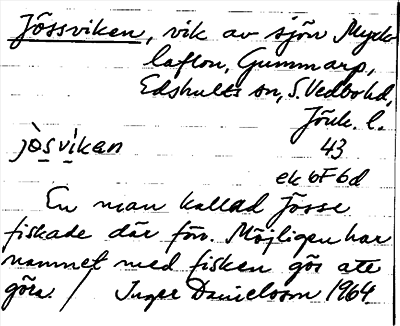 Jössviken, vik av sjön Myck-
laflon, Gummarp,
Edshults sn, S. Vedbo hd,
Jönk. l.
jòsvikan 43
ek 6F6d
En man kallad Jösse
fiskade där förr. Möjligen har
namnet med fisken gös att
göra. / Inger Danielsson 1964.